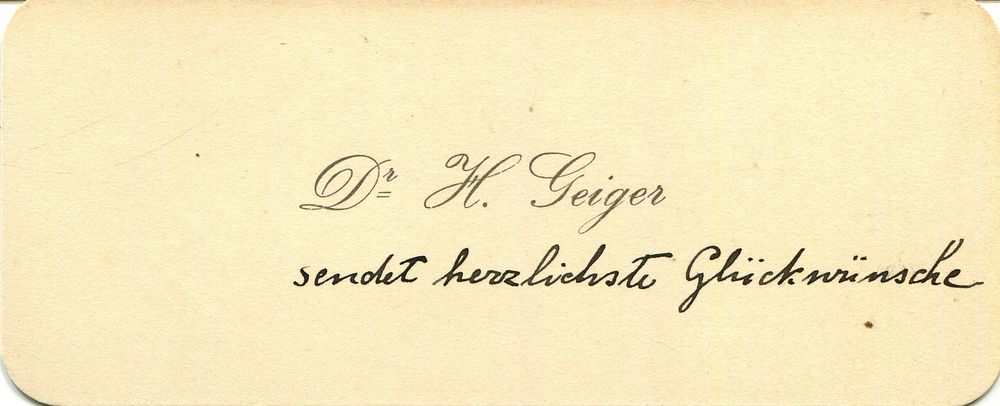 Dr H. Geiger
sendet herzlichste Glückwünsche